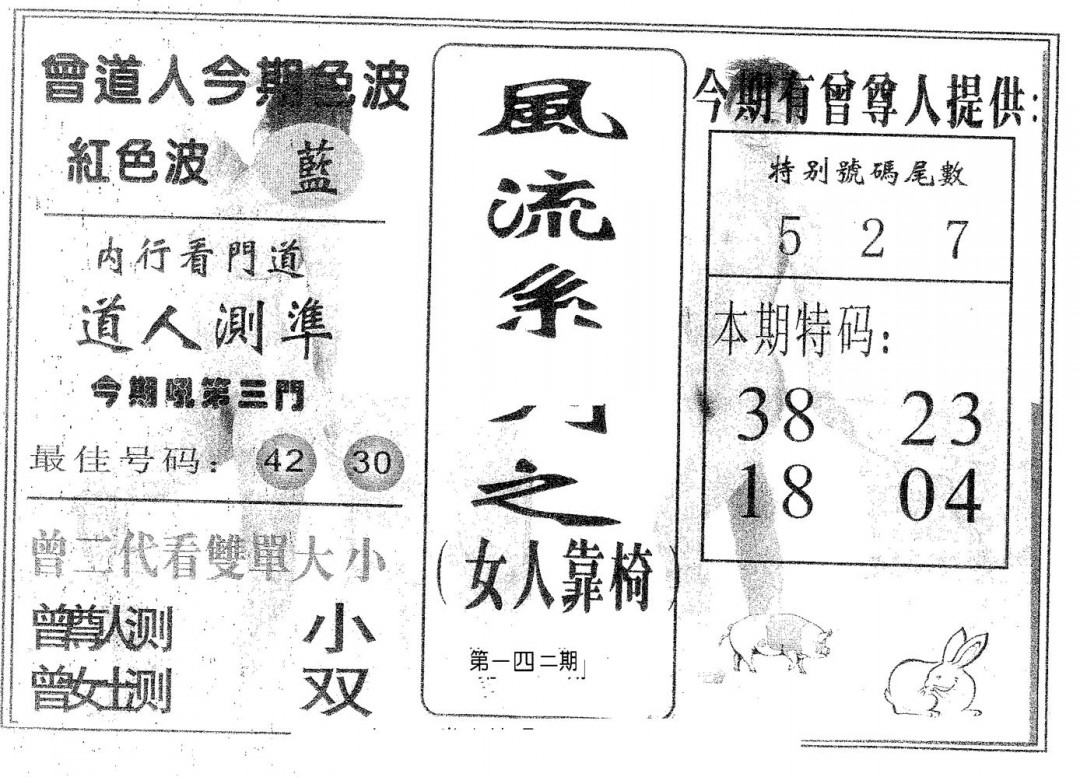 曾道人今期色波
紅色波 藍
内行看門道
道人測準
今期吼第三門
最佳号码: 42 30
曾二代看雙單大小
曾尊人测 小
曾女士测 双
風
流
系
之
(女人靠椅)
第一四二期
今期有曾尊人提供:
特别號碼尾數
5 2 7
本期特码:
38 23
18 04